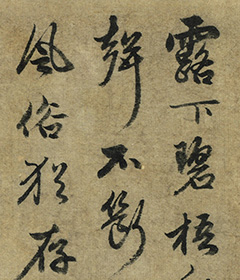 露下碧梧
聲不斷
風俗猶存